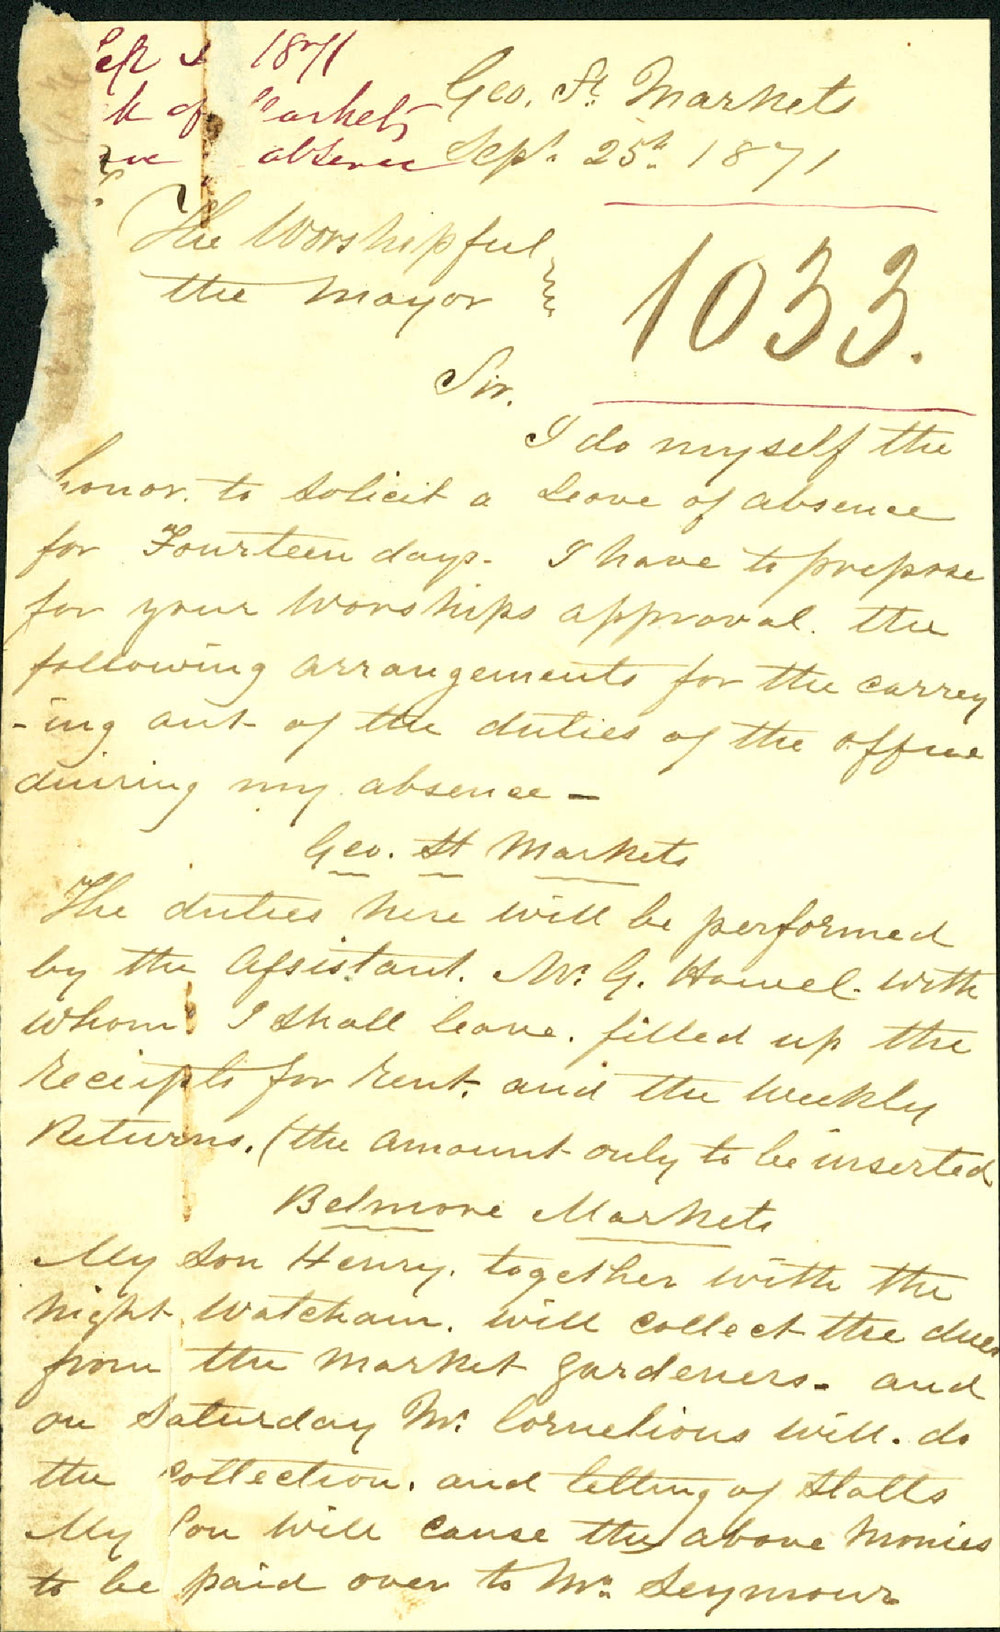 1871
of Markets
absence
Geo. St. Markets
Sept. 25th 1871
The Worshipful
the Mayor
1033.
Sir.
I do myself the
honor. to solicit a Leave of absence
for Fourteen days. I have to propose
for your Worships approval. the
following arrangements for the carrey
-ing out of the duties of the office
during my absence -
Geo. St Markets
The duties here will be performed
by the Assistant. Mr. G. Howel. with
whom I shall leave. filled up the
receipts for rent. and the weekly
Returns. (the amount only to be inserted
Belmore Markets
My Son Henry. together with the
night Watcham. will collect the dues
from the market gardeners. and
on Saturday Mr. Cornelious will. do
the Collection. and letting of Stalls
My Son will cause the above monies
to be paid over to Mr. Seymour